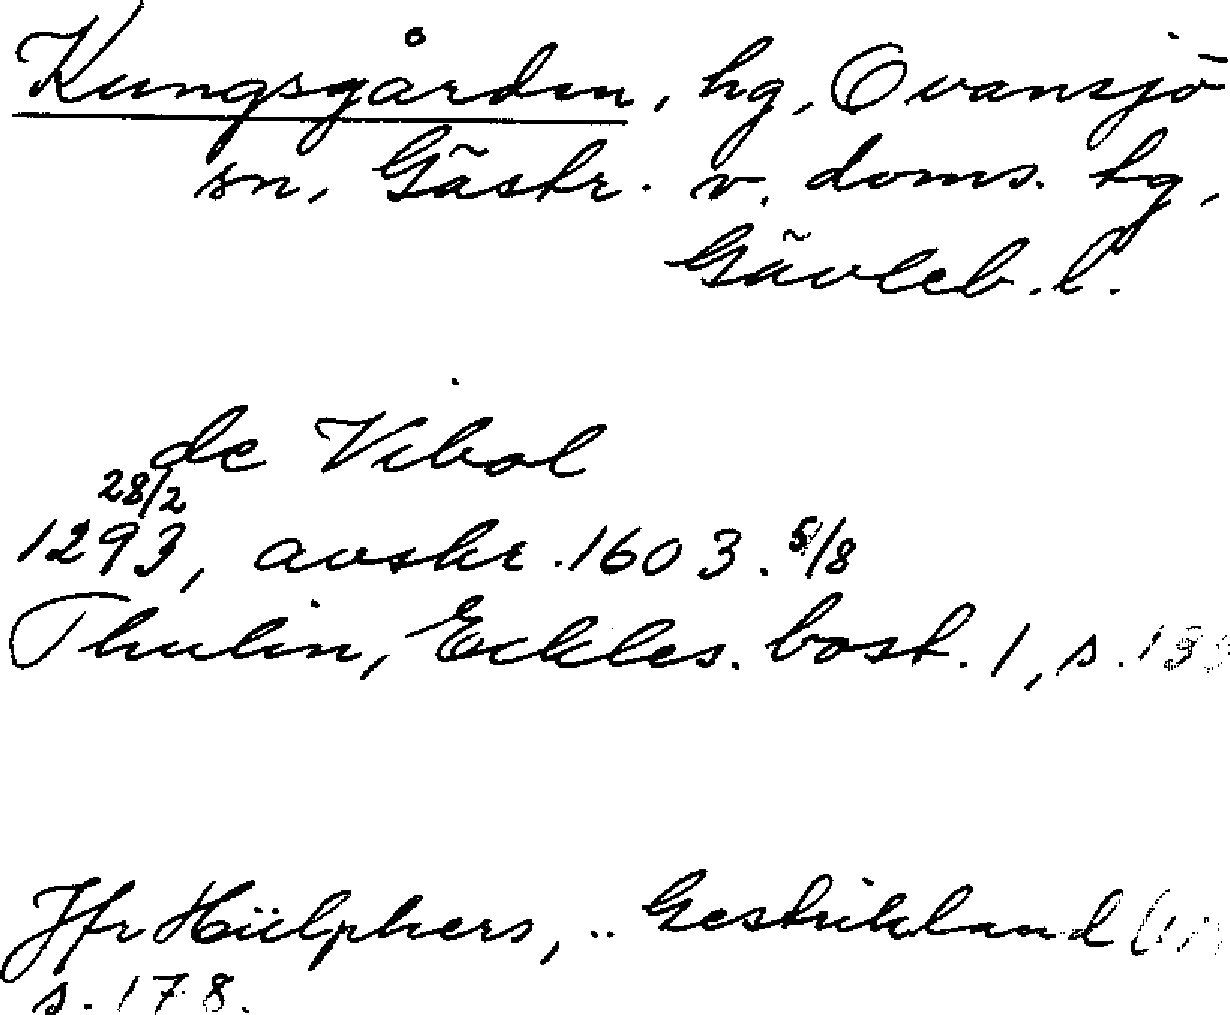 Kungsgården, hg, Ovansjö
sn, Gästr. v. doms. tg,
Gävleb. l.
de Vibol
28/2
1293, avskr. 1603. 5/8
Thulin, Eckles. bost. 1, s.
Jfr Hülphers, .. Gestrikland
s. 178.